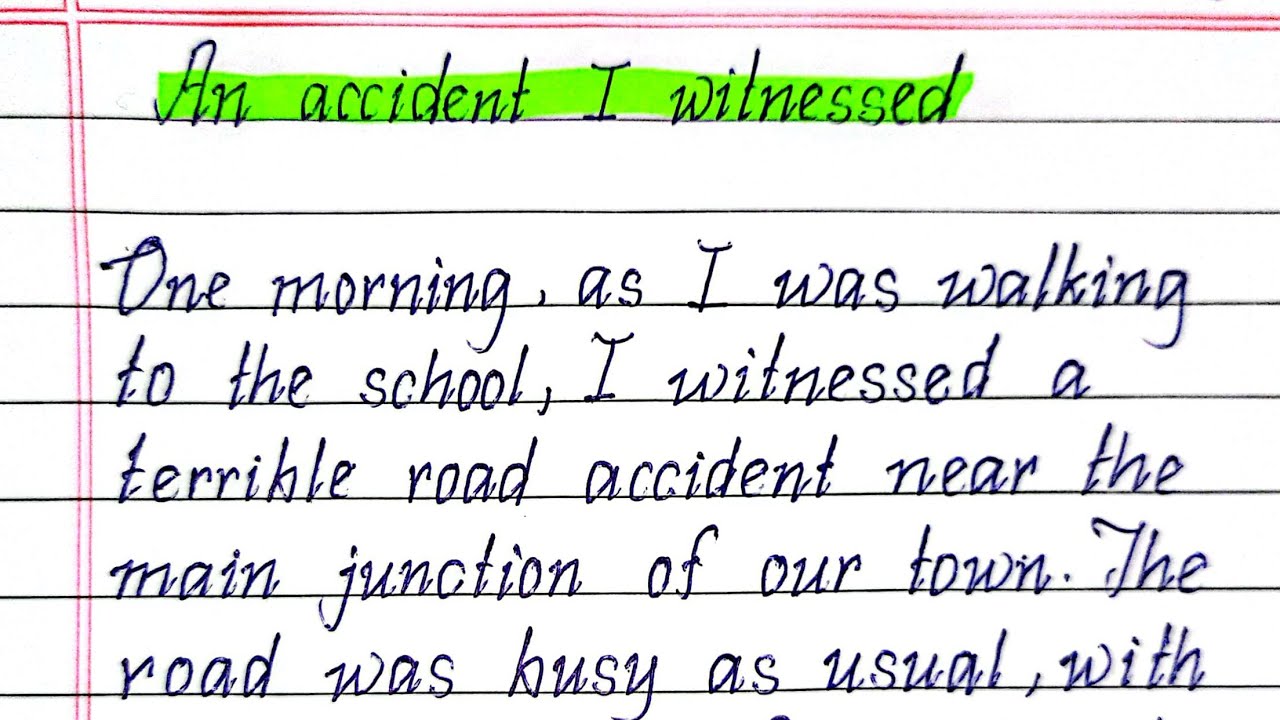 An accident I witnessed
One morning, as I was walking
to the school, I witnessed a
terrible road accident near the
main junction of our town. The
road was busy as usual, with